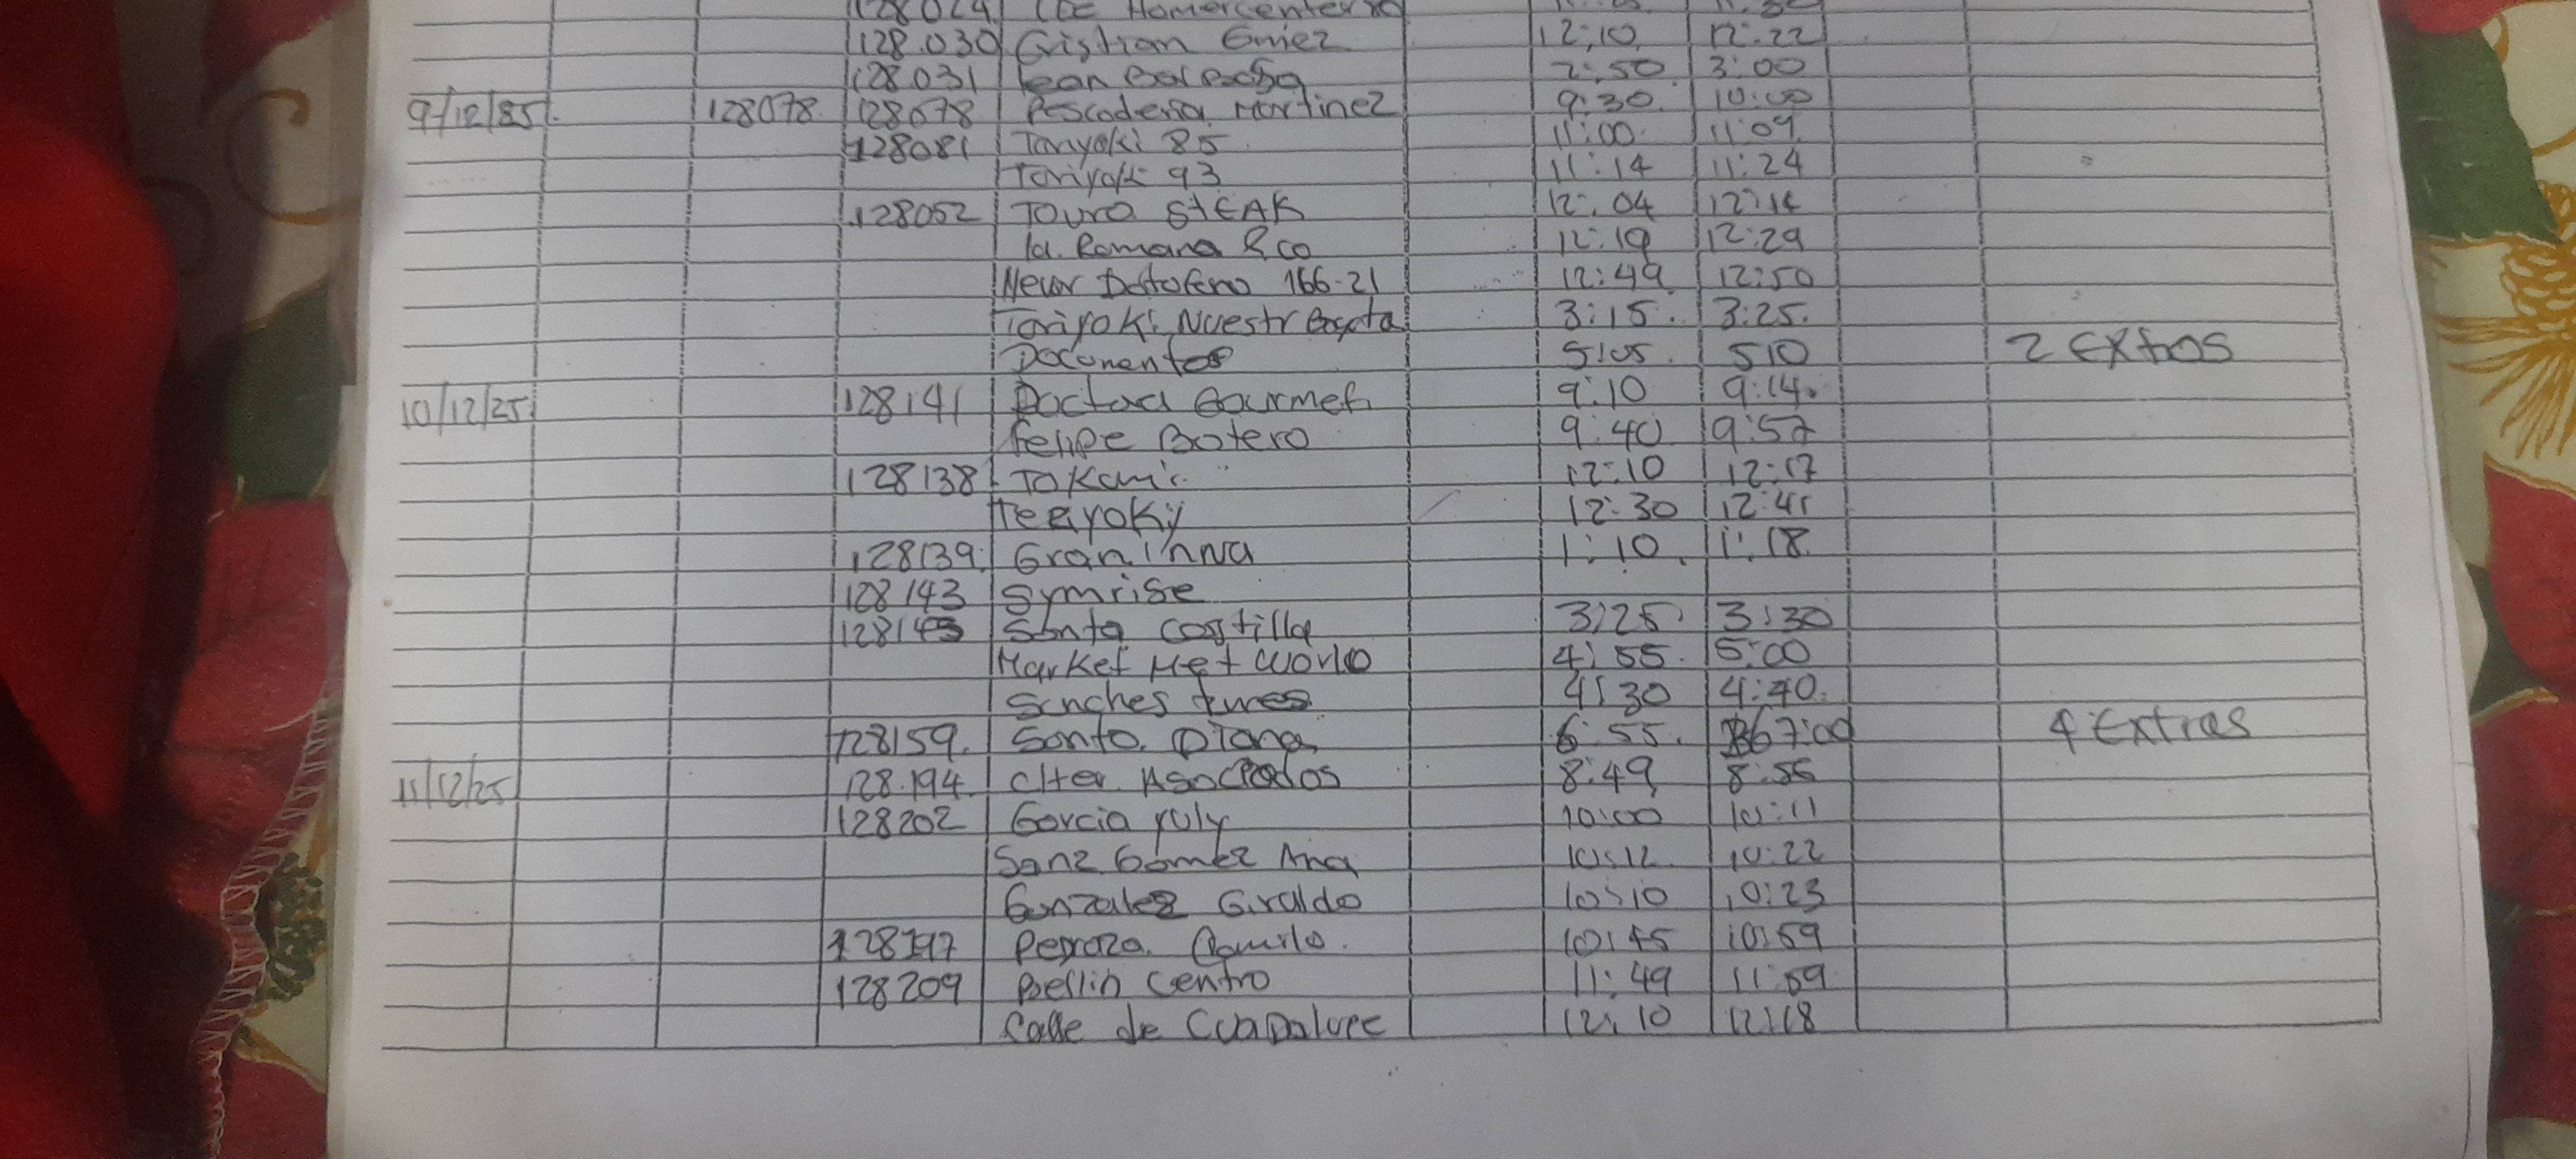 128.030 Cristian Gmez 12:10 12:22
128.031 2:50 3:00
9/12/25 128078 128078 Pescaderia Martinez 9:30 10:00
128081 Tariyaki 85 11:00 11:09
Tariyaki 93 11:14 11:24
128052 Touro STEAK 12:04 12:14
la Romana & co 12:19 12:29
166-21 12:49 12:50
Tariyoki Nuestr Bogota 3:15 3:25
Documentos 5:05 510 2 Extras
10/12/25 128141 Doctad Gourmet 9:10 9:14
Felipe Botero 9:40 9:57
128138 Tokami 12:10 12:17
Teeyoky 12:30 12:41
128139 Gran Inna 1:10 1:18
128143 Symrise
128145 Santa Costilla 3:25 3:30
Market Het World 4:55 5:00
Sanches 4:30 4:40
128159 Santo Diana 6:55 7:00 4 Extras
11/12/25 128.194 Clter Asociados 8:49 8:56
128202 Garcia yuly 10:00 10:11
Sanz Gomez Ana 10:12 10:22
Gonzalez Giraldo 10:10 10:23
128197 Pedraza Camilo 10:45 10:59
128209 Bellin Centro 11:49 11:59
Calle de Guadalupe 12:10 12:18